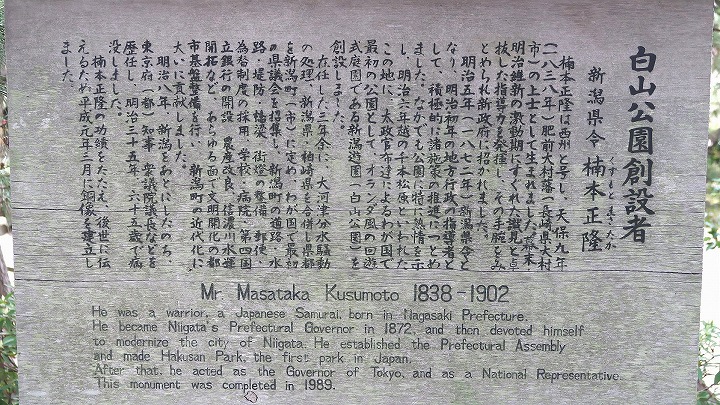 白山公園創設者
新潟県令 楠本正隆
くすもとまさたか
楠本正隆は西州と号し、天保九年
(一八三八年)肥前大村藩(長崎県大村
市)の上士として生まれました。幕末・
明治維新の激動期にすぐれた識見と卓
抜した指導力を発揮し、その手腕をみ
とめられ新政府に招かれました。
明治五年(一八七二年)新潟県令と
なり、明治初年の地方行政の指導者と
して、積極的に諸施策の推進につとめ
ました。なかでも公園に特に熱情を示
し、明治六年越の千本松原といわれた
この地に、太政官布達によるわが国で
最初の公園として、オランダ風の回遊
式庭園である新潟遊園(白山公園)を
創設しました。
在任した三年余に、大河津分水騒動
の処理、新潟県・柏崎県を合併し県都
を新潟町(市)に定め、わが国で最初
の県議会を招集し、新潟町の道路・水
路・堤防・橋梁・街燈の整備、郵便、
為替制度の採用、学校・病院・第四国
立銀行の開設、農産改良、信濃川水運
開拓など、あらゆる面で文明開化の都
市基盤整備を行い、新潟町の近代化に
大いに貢献しました。
明治八年、新潟をあとにしたのち、
東京府(都)知事、衆議院議長などを
歴任し、明治三十五年、六十五歳で病
没しました。
楠本正隆の功績をたたえ、後世に伝
えるため平成元年三月に銅像を建立し
ました。
Mr. Masataka Kusumoto 1838-1902
He was a warrior, a Japanese Samurai, born in Nagasaki Prefecture.
He became Niigata's Prefectural Governor in 1872, and then devoted himself
to modernize the city of Niigata. He established the Prefectural Assembly
and made Hakusan Park, the first park in Japan.
After that, he acted as the Governor of Tokyo, and as a National Representative.
This monument was completed in 1989.